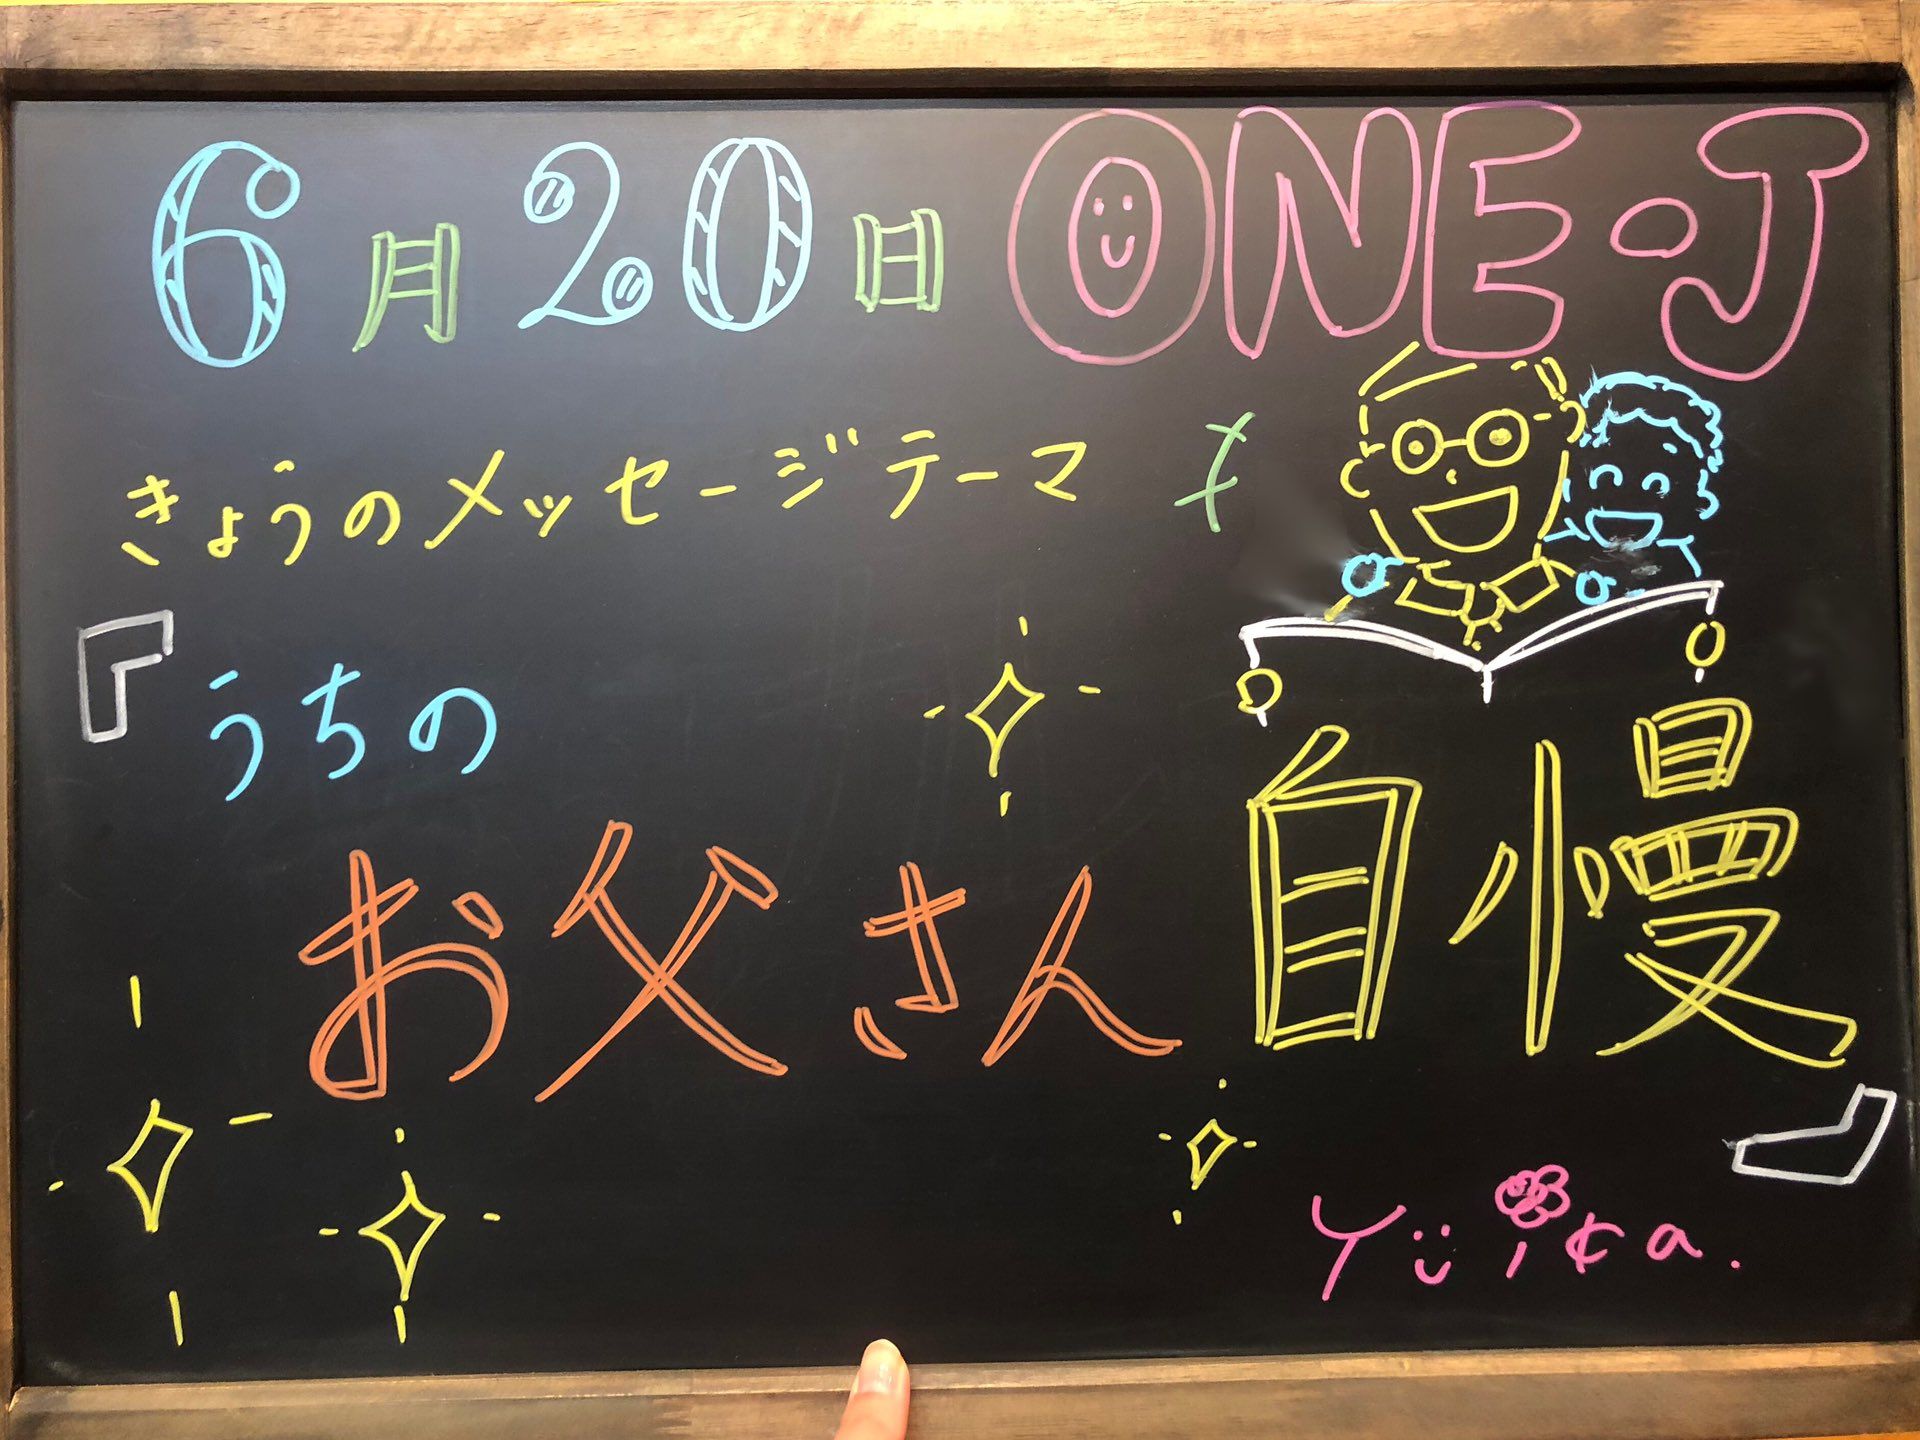 6月20日 ONE・J
きょうのメッセージテーマ
『うちの
お父さん自慢』
Yuika.